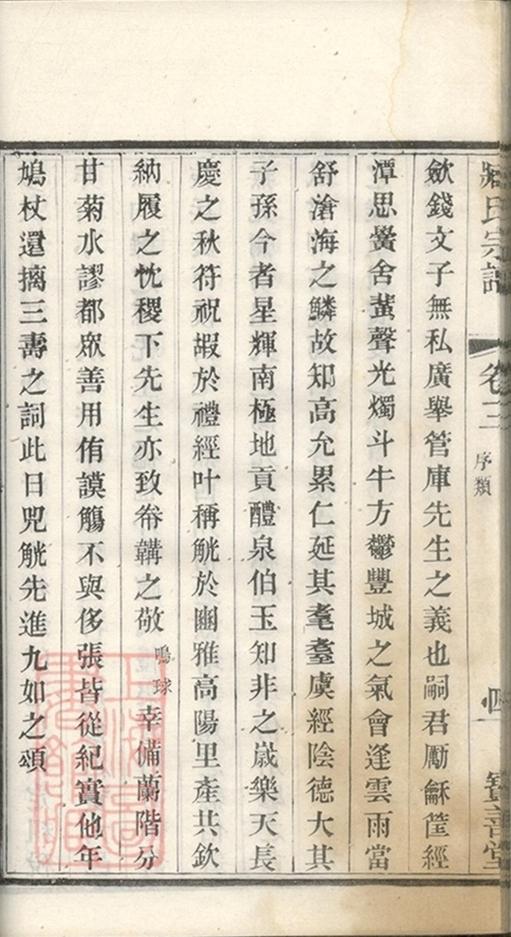 臧氏宗譜 卷三 序類 寶善堂
斂錢文子無私廣舉管庫先生之義也嗣君勵龢篋經
潭思黌舍蜚聲光燭斗牛方鬱豐城之氣會逢雲雨當
舒滄海之鱗故知高允累仁延其耄耋虞經陰德大其
子孫今者星輝南極地貢醴泉伯玉知非之歲樂天長
慶之秋符祝嘏於禮經叶稱觥於豳雅高陽里產共欽
納履之忱稷下先生亦致帣韝之敬鳴球幸備蘭階分
甘菊水謬都眾善用侑謨觴不與侈張皆從紀實他年
鳩杖還摛三壽之詞此日兕觥先進九如之頌